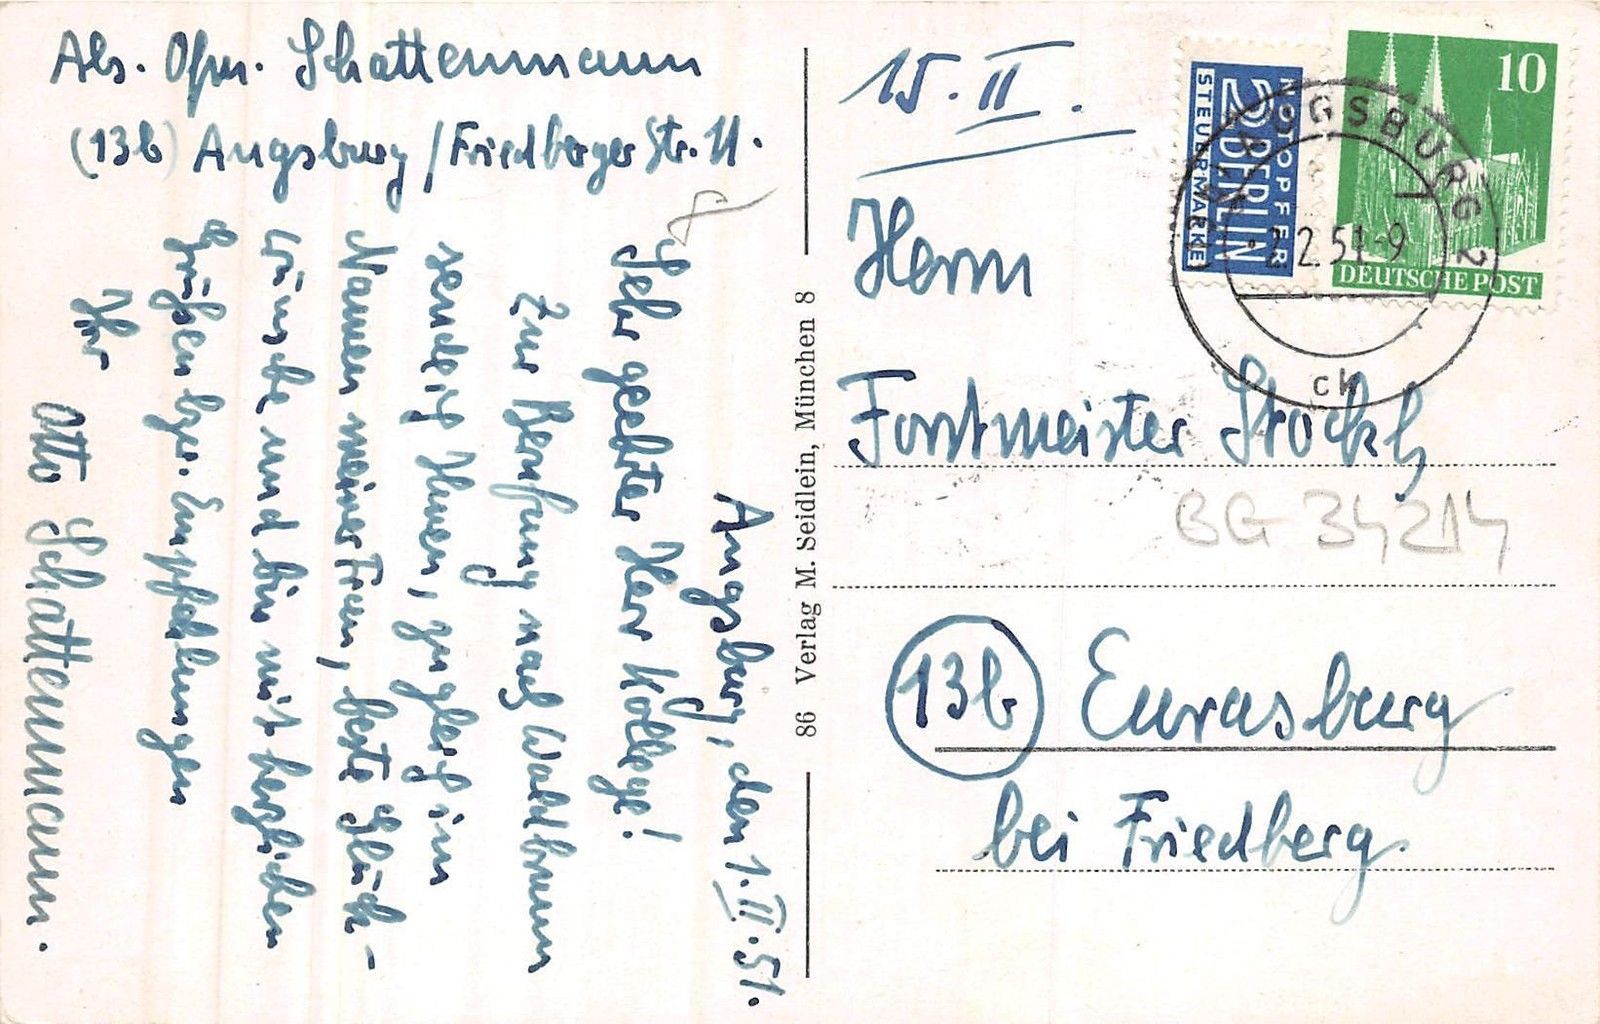 Abs. Ofm. Schattenmann
(13b) Augsburg / Friedberger Str. 11.
Augsburg, den 1.II.51.
Sehr geehrter Herr Kollege!
Zur Berufung nach Waldbrunn
sende ich Ihnen, zugleich im
Namen meiner Frau, beste Glück-
wünsche und bin mit herzlichen
Grüßen bzw. Empfehlungen
Ihr
Otto Schattenmann.
86 Verlag M. Seidlein, München 8
15. II.
NOTOPFER
2 BERLIN
STEUERMARKE
10
DEUTSCHE POST
AUGSBURG 2
2.2.51-9
ch
Herrn
Forstmeister Stockl
BG 34214
13b Eurasburg
bei Friedberg.